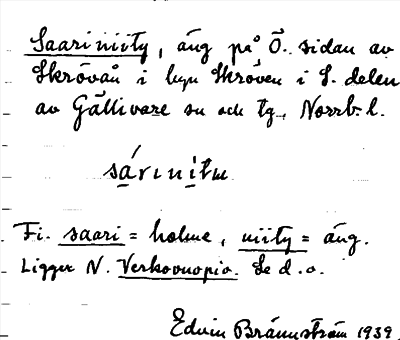 Saariniity, äng på Ö. sidan av
Skrövån i byn Skröven i S. delen
av Gällivare sn och tg., Norrb. l.
sárinitu
Fi. saari = holme, niity = äng.
Ligger N. Verkovuopio. Se d. o.
Edvin Brännström 1939.